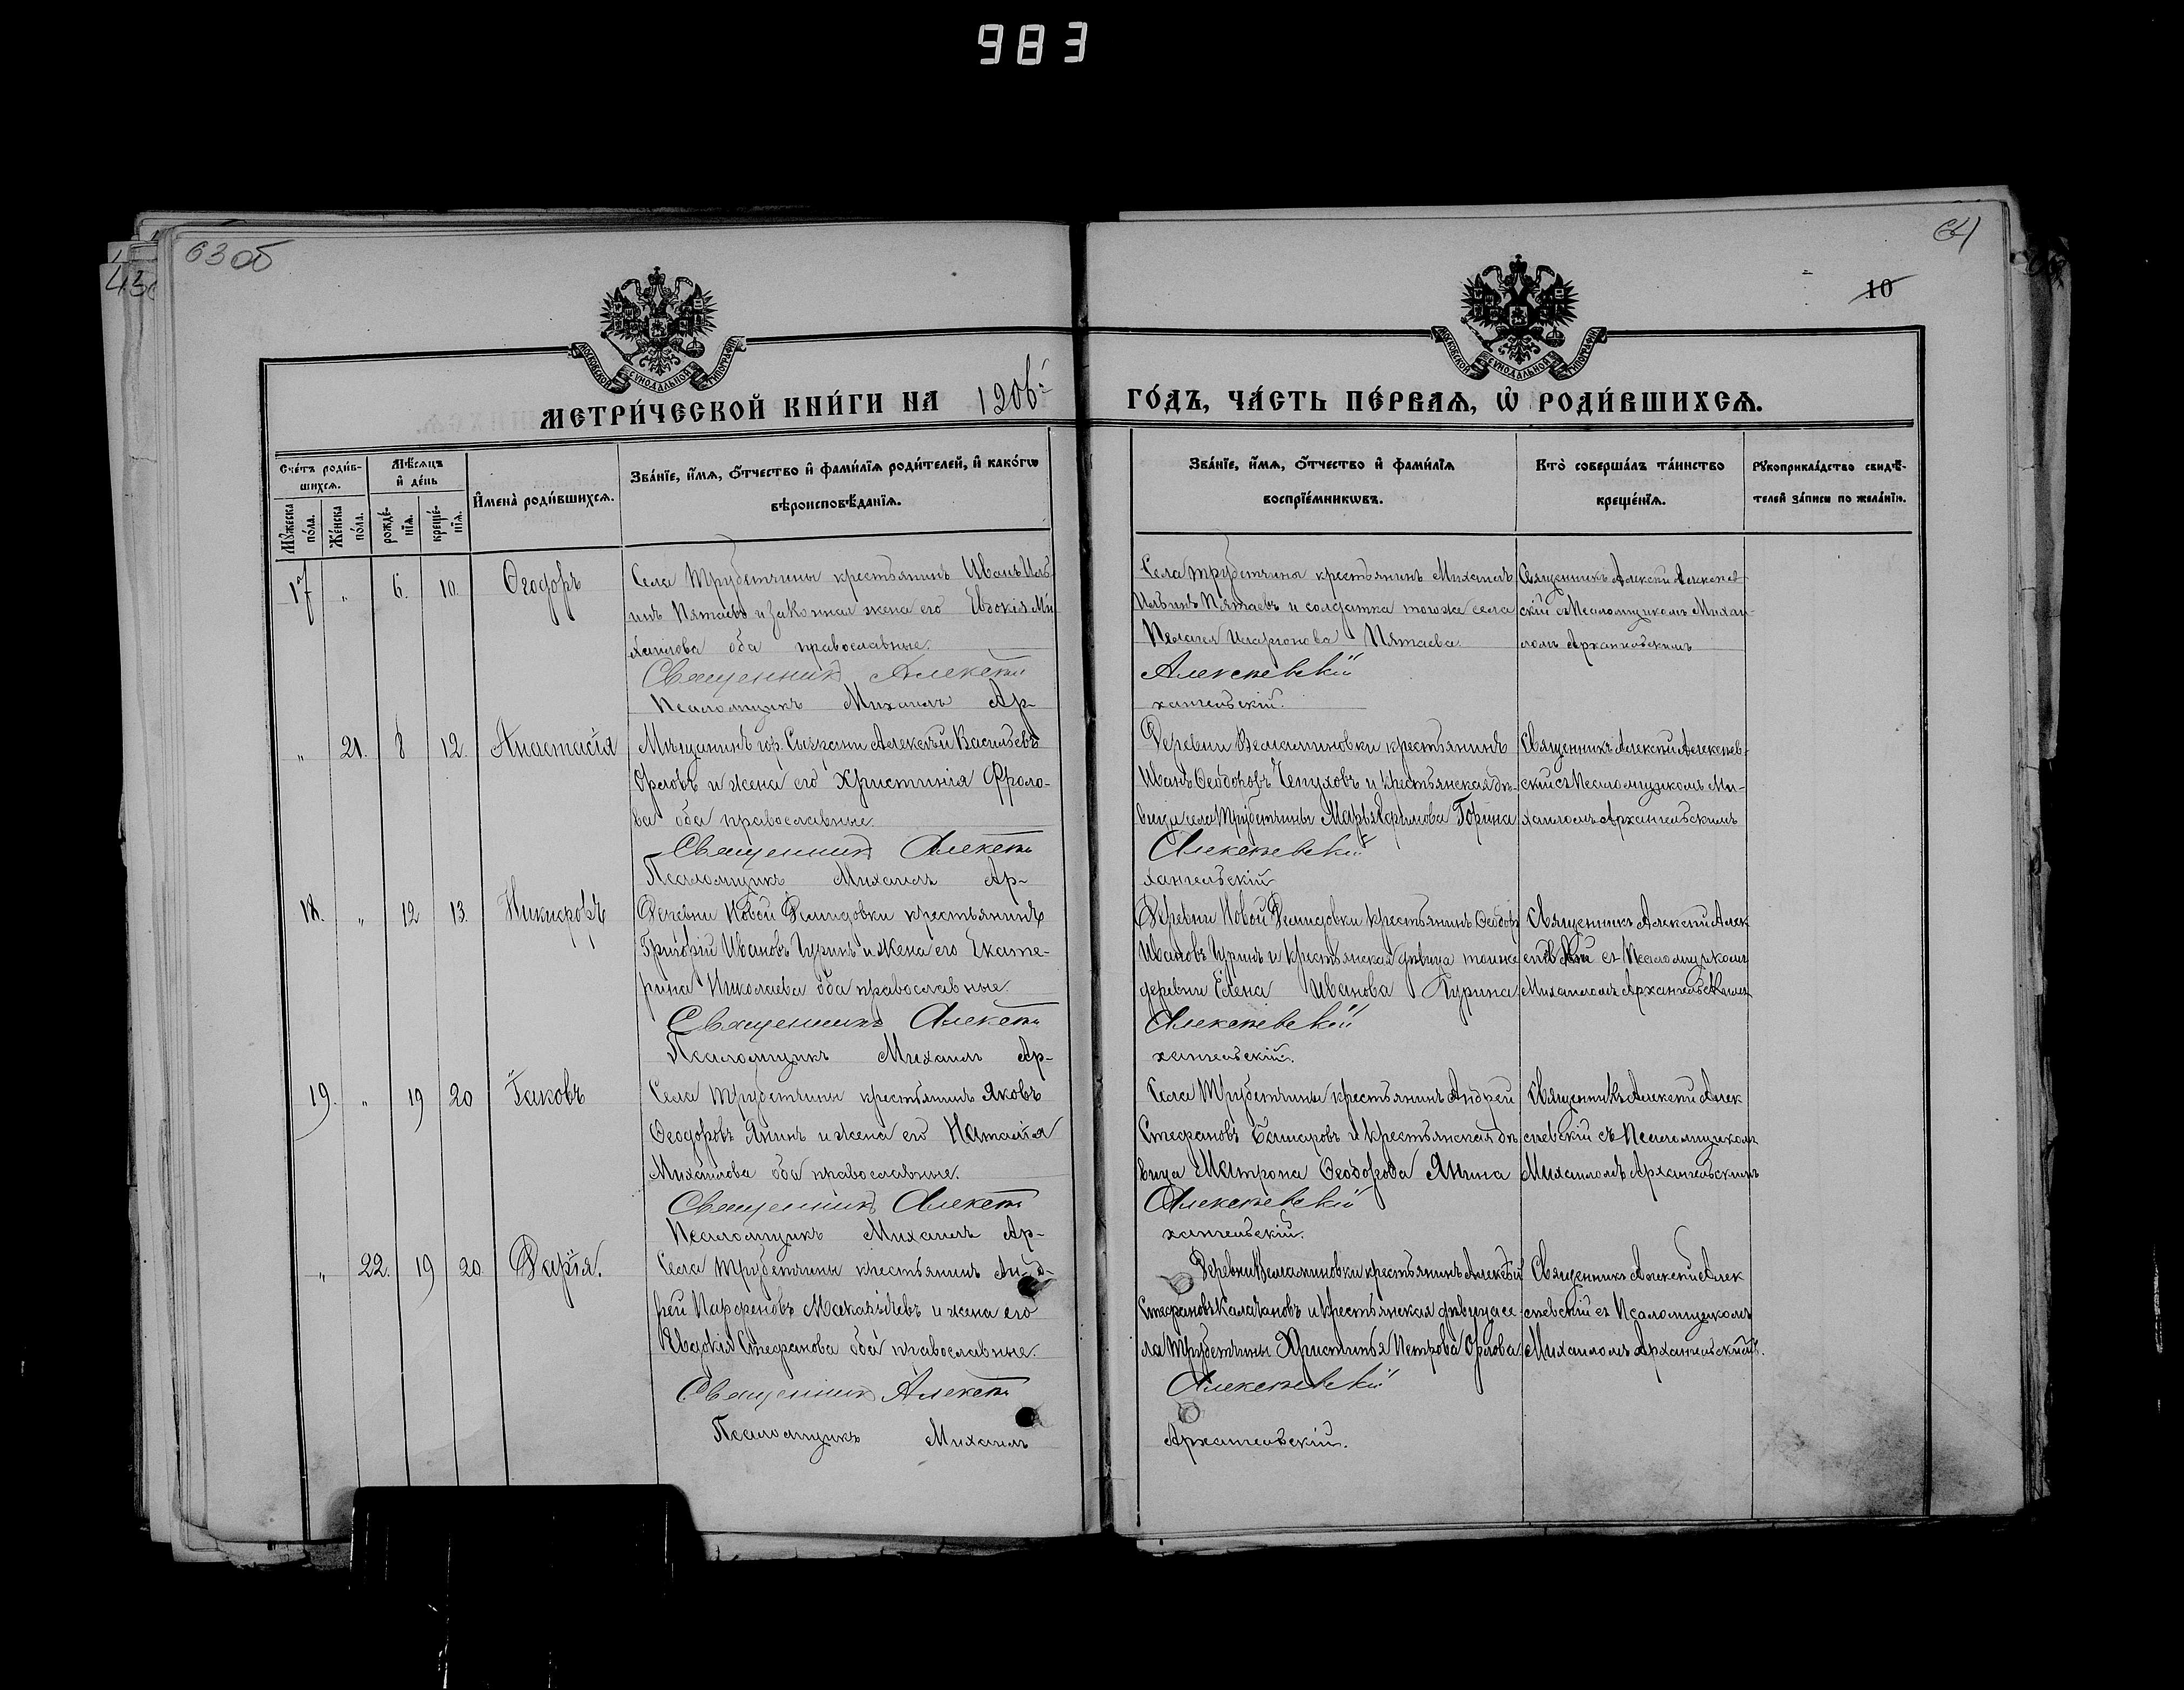 983
63 об
64
10
МОСКОВСКОЙ СѴНОДАЛЬНОЙ ТИПОГРАФІИ
МОСКОВСКОЙ СѴНОДАЛЬНОЙ ТИПОГРАФІИ
МЕТРИ́ЧЕСКОЙ КНИ́ГИ НА 1906й ГО́ДЪ, ЧА́СТЬ ПЕ́РВАѦ, Ѡ҆ РОДИ́ВШИХСѦ.
Сче́тъ роди́в-
шихсѧ.
Мѹ́жеска по́ла.
Же́нска по́ла.
Мѣ́сѧцъ
и҆ де́нь
рожде́-нїѧ.
креще́-нїѧ.
И҆мена̀ роди́вшихсѧ.
Зва́нїе, и҆́мѧ, ѻ҆́тчество и҆ фами́лїѧ роди́телей, и҆ како́гѡ
вѣроисповѣ́данїѧ.
Зва́нїе, и҆́мѧ, ѻ҆́тчество и҆ фами́лїѧ
воспрїе́мникѡвъ.
Кто̀ соверша́лъ та́инство
креще́нїѧ.
Рѹкоприкла́дство свидѣ́-
телей за́писи по жела́нїю.
17 „ 6. 10. Ѳеодоръ
Села Трубетчины крестьянинъ Иванъ Иль-
инъ Пятаевъ и законная жена его Евдокія Ми-
хаилова оба православные.
Священникъ Алексѣй
Псаломщикъ Михаилъ Ар-
Села Трубетчины крестьянинъ Михаилъ
Ильинъ Пятаевъ и солдатка тогоже села
Пелагея Иларионова Пятаева.
Алексѣевскій
хангельскій.
Священникъ Алексѣй Алексѣев-
скій съ Псаломщикомъ Михаи-
ломъ Архангельскимъ
„ 21. 8 12. Анастасія
Мѣщанинъ гор. Сызрани Алексѣй Васильевъ
Орловъ и жена его Христинія Фроло-
ва оба православные.
Священникъ Алексѣй
Псаломщикъ Михаилъ Ар-
Деревни Веламиновки крестьянинъ
Иванъ Ѳеодоровъ Чепуховъ и крестьянская дѣ-
вица села Трубетчины Марья Ефимова Горина
Алексѣевскій
хангельскій
Священникъ Алексѣй Алексѣев-
скій съ Псаломщикомъ Ми-
хаиломъ Архангельскимъ
18. „ 12 13. Никифоръ
Деревни Новой Демидовки крестьянинъ
Григорій Ивановъ Гуринъ и жена его Екате-
рина Николаева оба православные.
Священникъ Алексѣй
Псаломщикъ Михаилъ Ар-
Деревни Новой Демидовки крестьянинъ Ѳеодоръ
Ивановъ Гуринъ и крестьянская дѣвица тоиже
деревни Елена Иванова Гурина
Алексѣевскій
хангельскій.
Священникъ Алексѣй Алек
сѣевскій съ Псаломщикомъ
Михаиломъ Архангельскимъ
19. „ 19 20 Іаковъ
Села Трубетчины крестьянинъ Яковъ
Ѳеодоровъ Янинъ и жена его Наталія
Михаилова оба православные.
Священникъ Алексѣй
Псаломщикъ Михаилъ Ар-
Села Трубетчины крестьянинъ Андрей
Стефановъ Башаровъ и крестьянская дѣ
вица Матрона Ѳеодорова Янина
Алексѣевскій
хангельскій.
Священникъ Алексѣй Алек
сѣевскій съ Псаломщикомъ
Михаиломъ Архангельскимъ
„ 22. 19 20 Дарія.
Села Трубетчины крестьянинъ Анд-
рей Парфеновъ Макавѣевъ и жена его
Евдокія Стефанова оба православные.
Священникъ Алексѣй
Псаломщикъ Михаилъ
Деревни Веламиновки крестьянинъ Алексѣй
Стефановъ Калачановъ и крестьянская дѣвица се
ла Трубетчины Христинья Петрова Орлова
Алексѣевскій
Архангельскій.
Священникъ Алексѣй Алек
сѣевскій съ Псаломщикомъ
Михаиломъ Архангельскимъ.